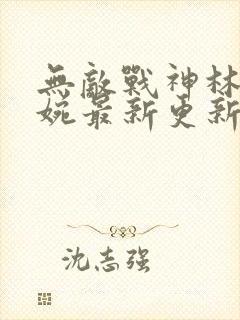 無敵戰神林
婉最新更新
沈志强